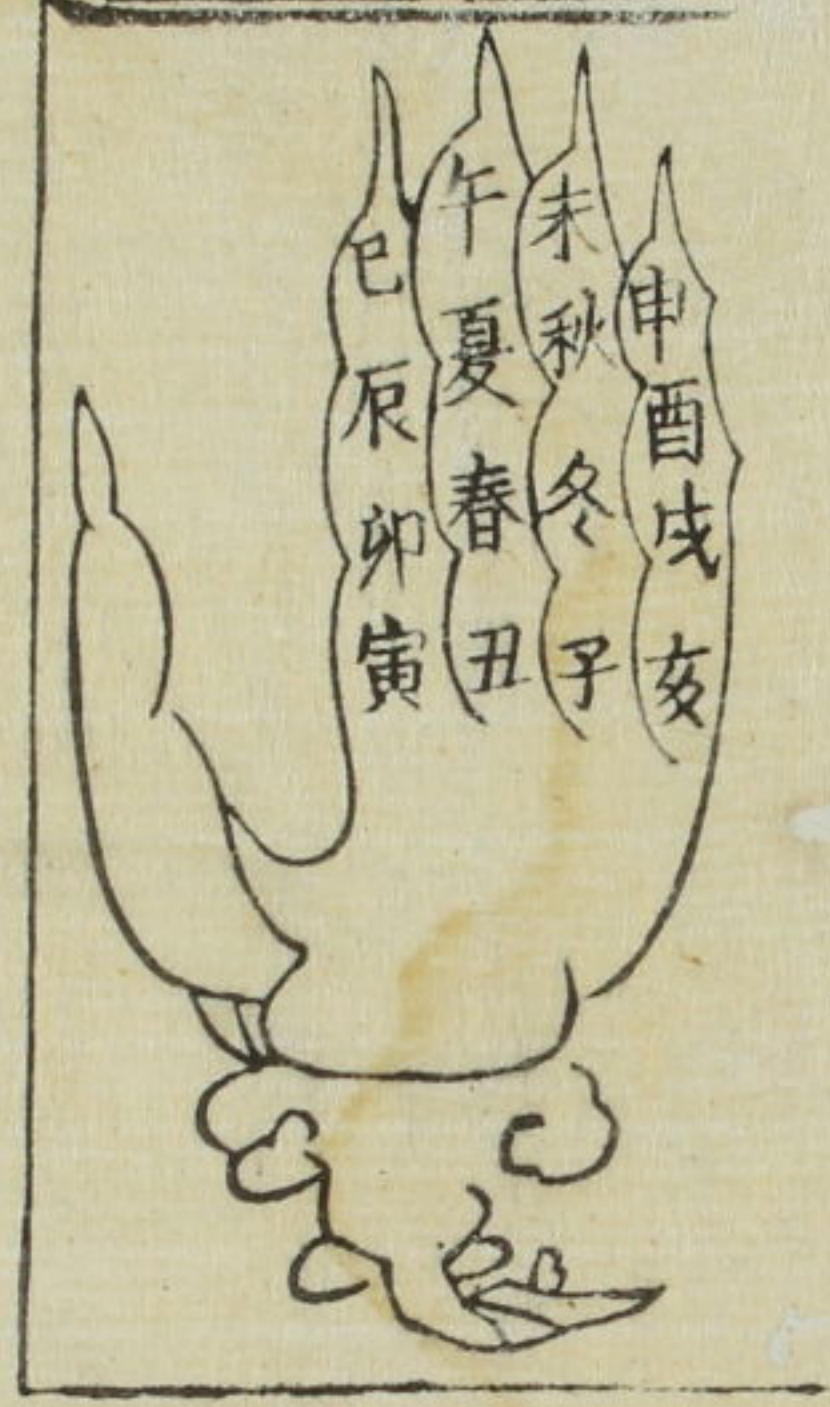 申酉戌亥
未秋冬子
午夏春丑
巳辰卯寅